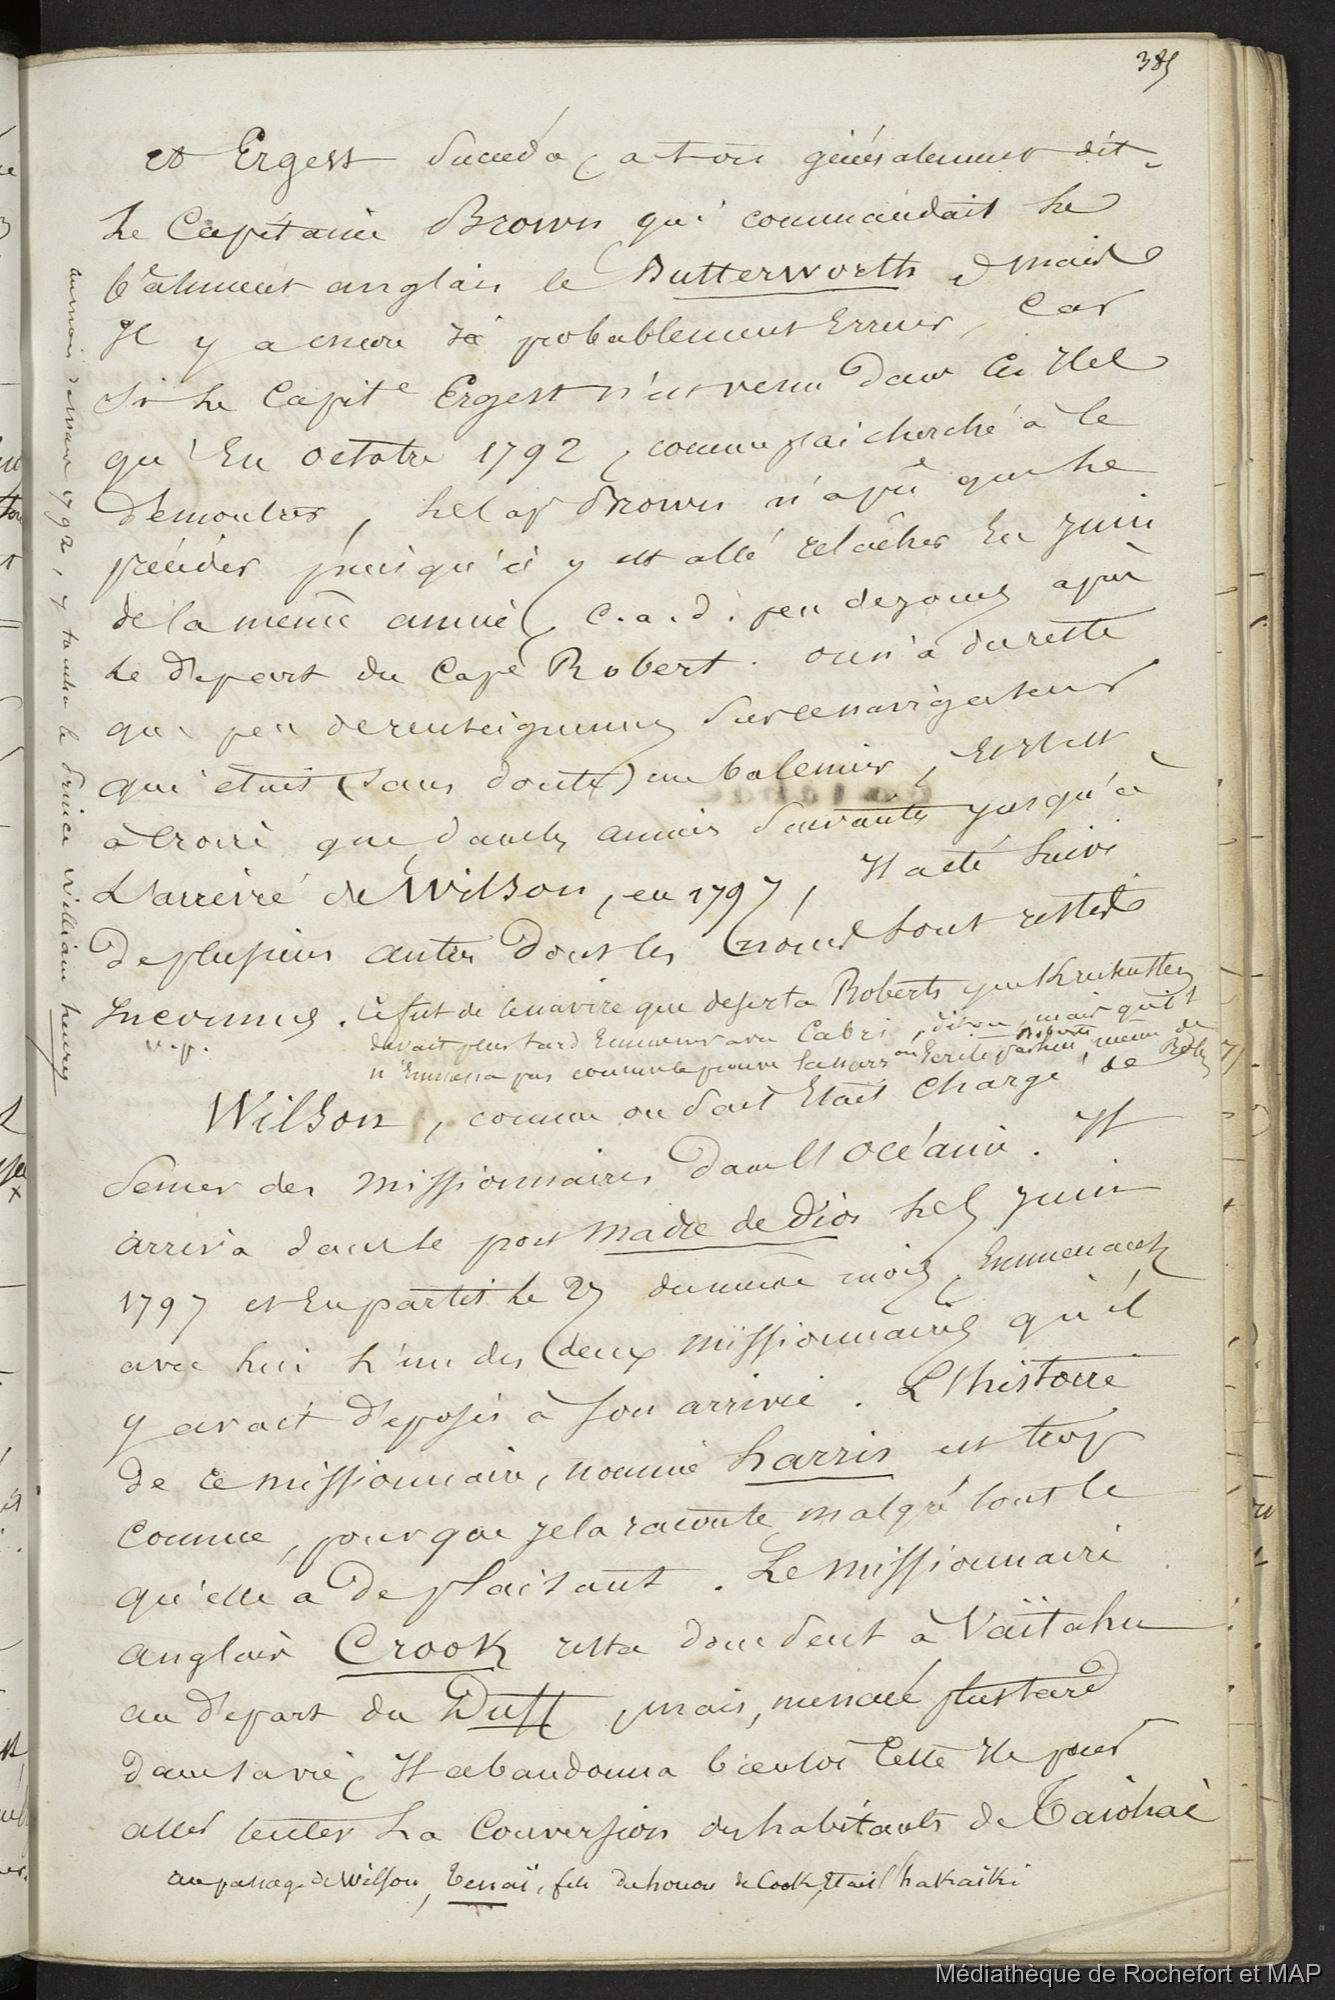 385
et Ergest succéda, a t on généralement dit,
le Capitaine Brown qui commandait le
bâtiment anglais le Butterworth, mais
Il y a encore là probablement Erreur, Car
si le Capit.e Ergest n'est venu dans ces Iles
qu'En octobre 1792, comme j'ai cherché à le
démontrer, le Cap Brown n'a pu que le
précéder puisqu'il y est allé relâcher En Juin
de la même année, c.a.d. peu de jours après
le départ du Cape Robert. on n'a du reste
que peu de renseignemens sur ce navigateur
qui était (sans doute) un baleinier, Et Il est
à croire que dans les années suivantes jusqu'à
L'arrivée de Wilson, en 1797, Il a été suivi
de plusieurs autres dont les noms sont restés
Inconnus. Ce fut de ce navire que deserta Roberts que Krusenstern
devait plus tard Emmener avec Cabri, dit on, mais qu'il
n'Emmena pas comme le prouve
Wilson, comme on sait Etait chargé de
semer des missionnaires dans l'Océanie. Il
arriva dans le port Madre de Dios le 5 Juin
1797 et En partit le 27 du même mois, Emmenant
avec lui l'un des deux missionnaires qu'il
y avait déposés à son arrivée. L'histoire
de ce missionnaire, nommé harris est trop
connue, pour que je la raconte malgré tout le
qu'elle a de plaisant. Le missionnaire
anglais Crook resta donc seul à Vaïtahu
au départ du Duff, mais, menacé plus tard
dans sa vie, Il abandonna bientôt cette Ile pour
aller tenter la Conversion des habitants de Taiohaè
au passage de Wilson, Tenaï, fils du honou de Cook, Etait hakaïki
au mois de mars 1792, y toucha le Prince William henry
v.p.
Médiathèque de Rochefort et MAP